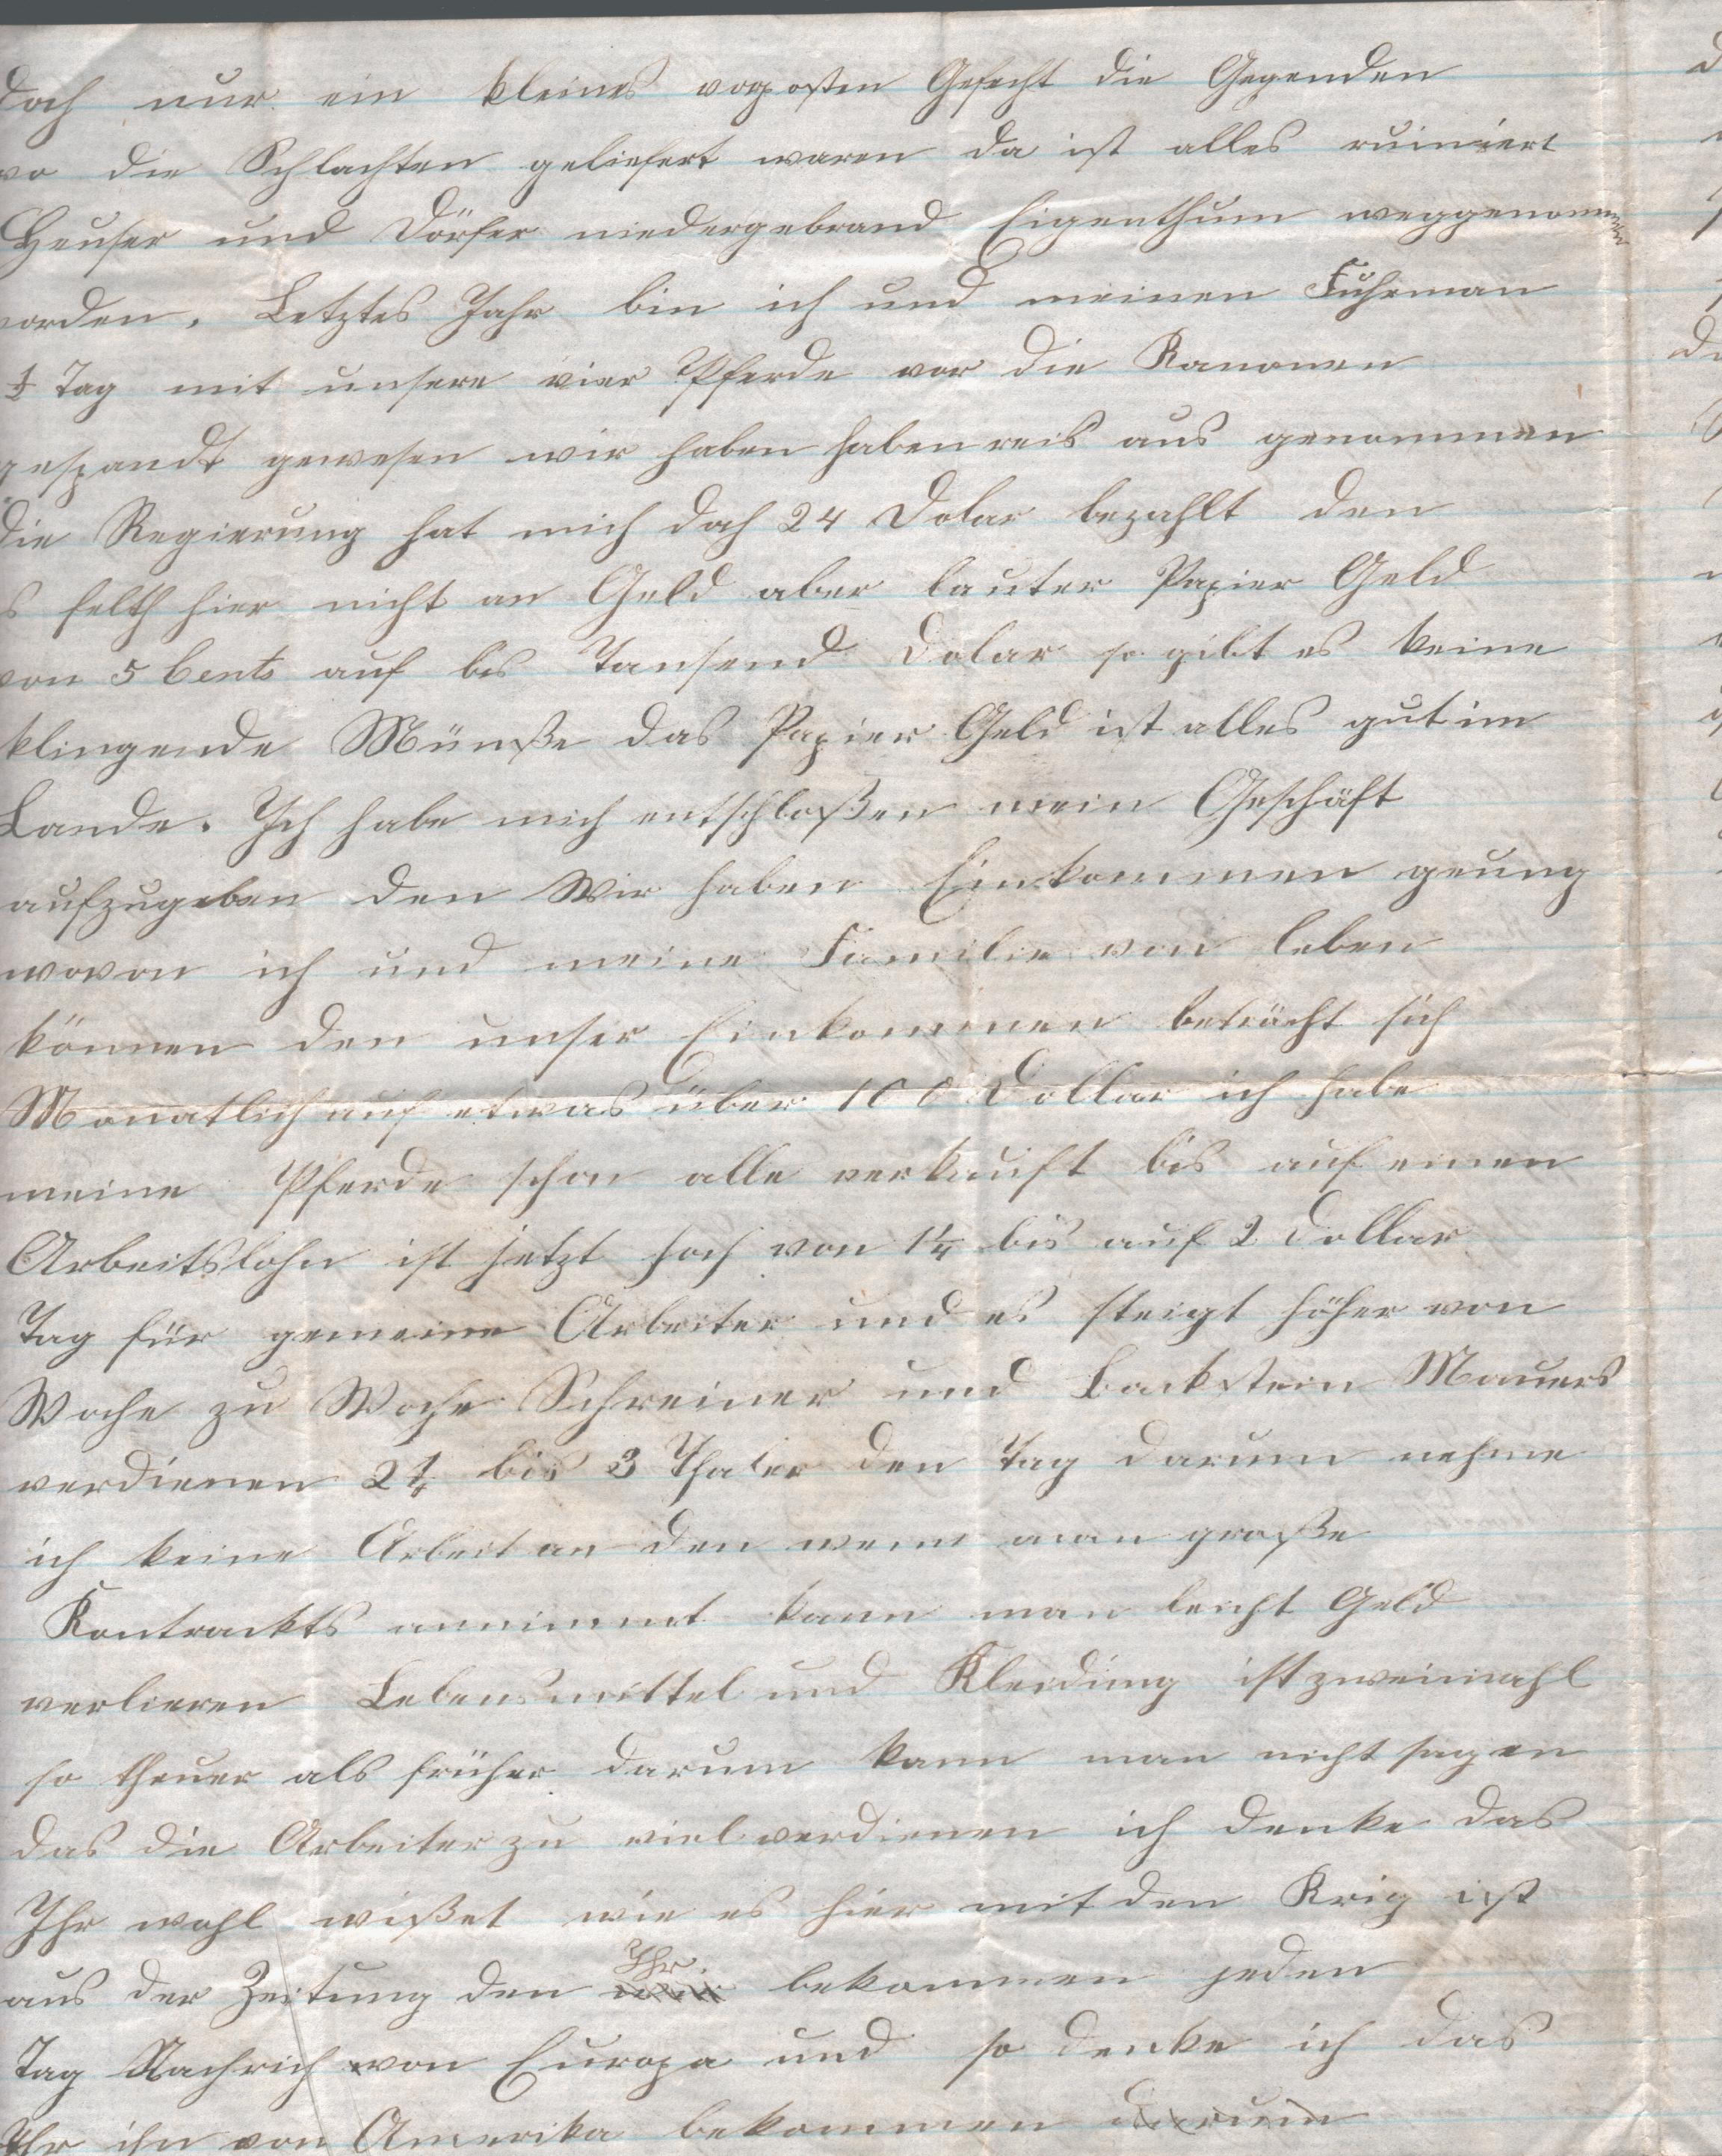 doch nur ein kleines vorposten Gefecht die Gegenden
wo die Schlachten geliefert waren da ist alles ruiniert
Heuser und Dörfer niedergebrand Eigenthum weggenommen
worden. Letztes Jahr bin ich und meinen Fuhrman
½ Tag mit unsere vier Pferde vor die Kanonen
gespandt gewesen wir haben haben reis aus genommen
die Regierung hat mich doch 24 Dolar bezahlt den
s felth hier nicht an Geld aber lauter Papier Geld
von 5 Cents auf bis Tausend Dolar so gibt es keine
klingende Münße das Papier Geld ist alles gut im
Lande. Ich habe mich entschloßen mein Geschäft
aufzugeben den Wir haben Einkommen geung
wovon ich und meine Familie von leben
können den unser Einkommen beträcht sich
Monatlich auf etwas über 100 Dollar ich habe
meine Pferde schon alle verkauft bis auf einen
Arbeitslohn ist jetzt hoch von 1¼ bis auf 2 Dollar
Tag für gemeine Arbeiter und es steigt höher von
Woche zu Woche Schreiner und Backstein Mauers
verdienen 2½ bis 3 Thaler den Tag darum nehme
ich keine Arbeit an den wenn man große
Kontrackts annimmt kann man leicht Geld
verlieren Lebensmittel und Kleidung ist zweimahl
so theuer als früher darum kann man nicht sagen
das die Arbeiter zu viel verdienen ich denke das
Ihr wohl wißet wie es hier mit den Krig ist
aus der Zeitung den Ihr wir bekommen jeden
Tag Nachrich von Europa und so denke ich das
Ihr ihn von Amerika bekommen darum